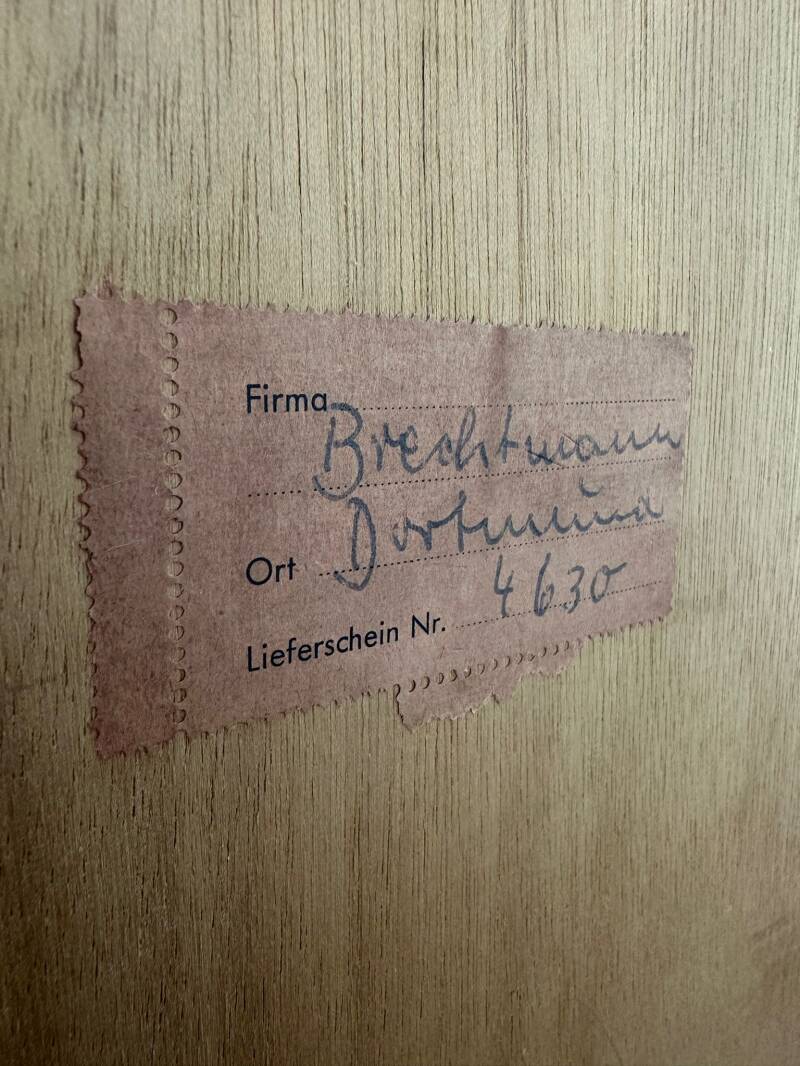 Firma
Brechtmann
Ort Dortmund
Lieferschein Nr. 4630